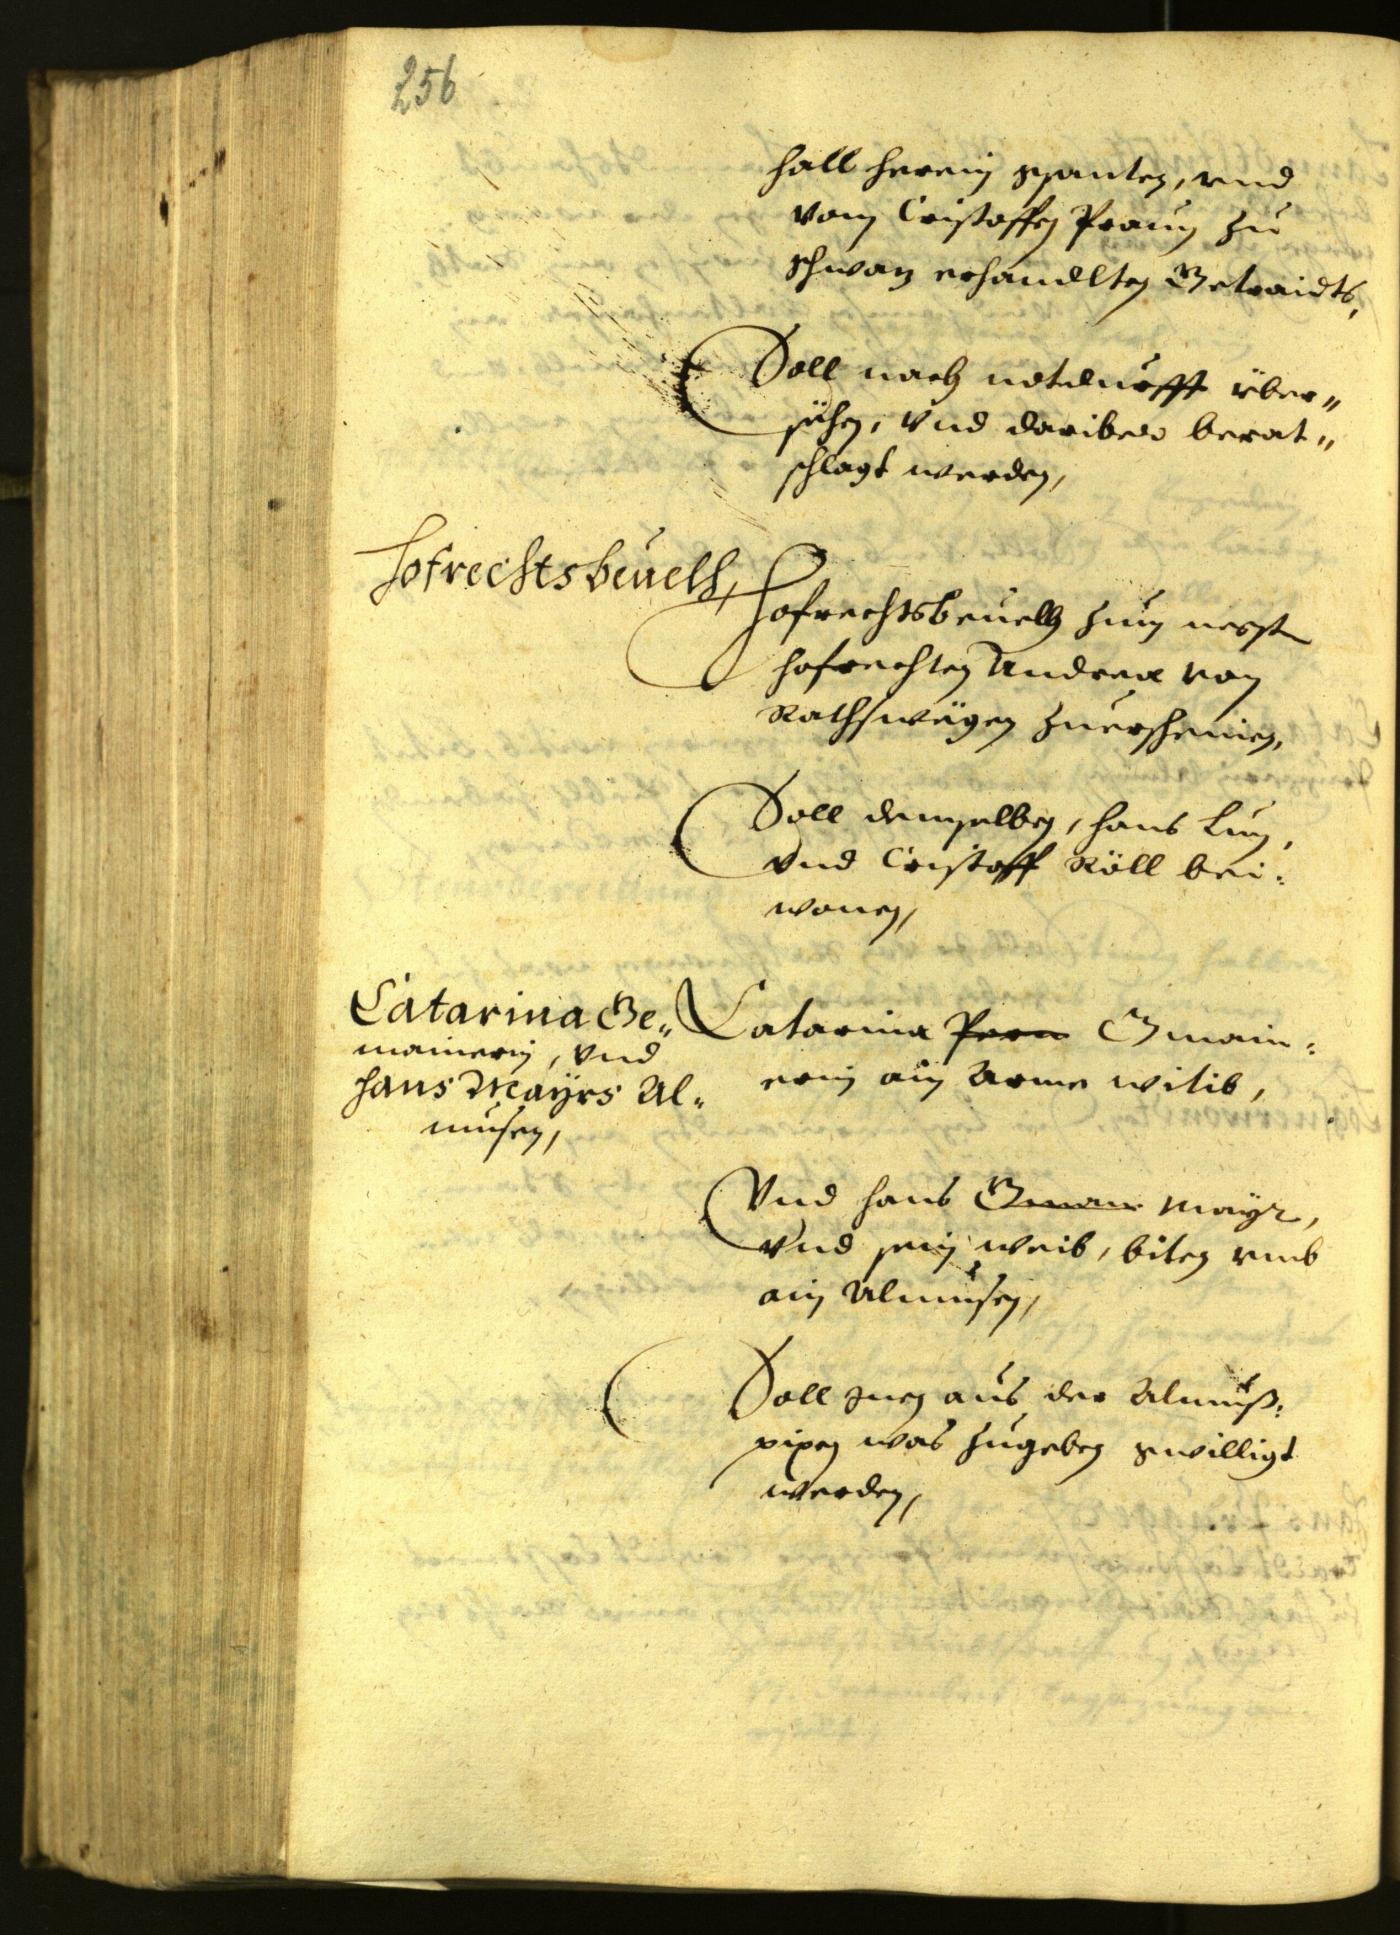 256
hall herein gsanten, vnd
vom Cristoffen Praun zu
schwaz erhandlten Getraidts,
Soll nach notdurfft über„
sehen, Vnd dariber berat„
schlagt werden,
Hofrechtsbeuelh,
Hofrechtsbeuelh zum negst
hofrechten Andree von
Rathswegen zuerscheinen,
Soll demselben, Hans Lun,
vnd Cristoff Röll bei:
wonen,
Catarina Ge„
mainerin, vnd
Hans Mayrs Al„
musen,
Catarina Pern Gmain:
erin ain Arme witib,
Vnd Hans Gmain Mayr,
vnd sein weib, biten vmb
ain Almusen,
Soll Inen aus der Almuß:
pixen was zugeben gwilligt
werden,